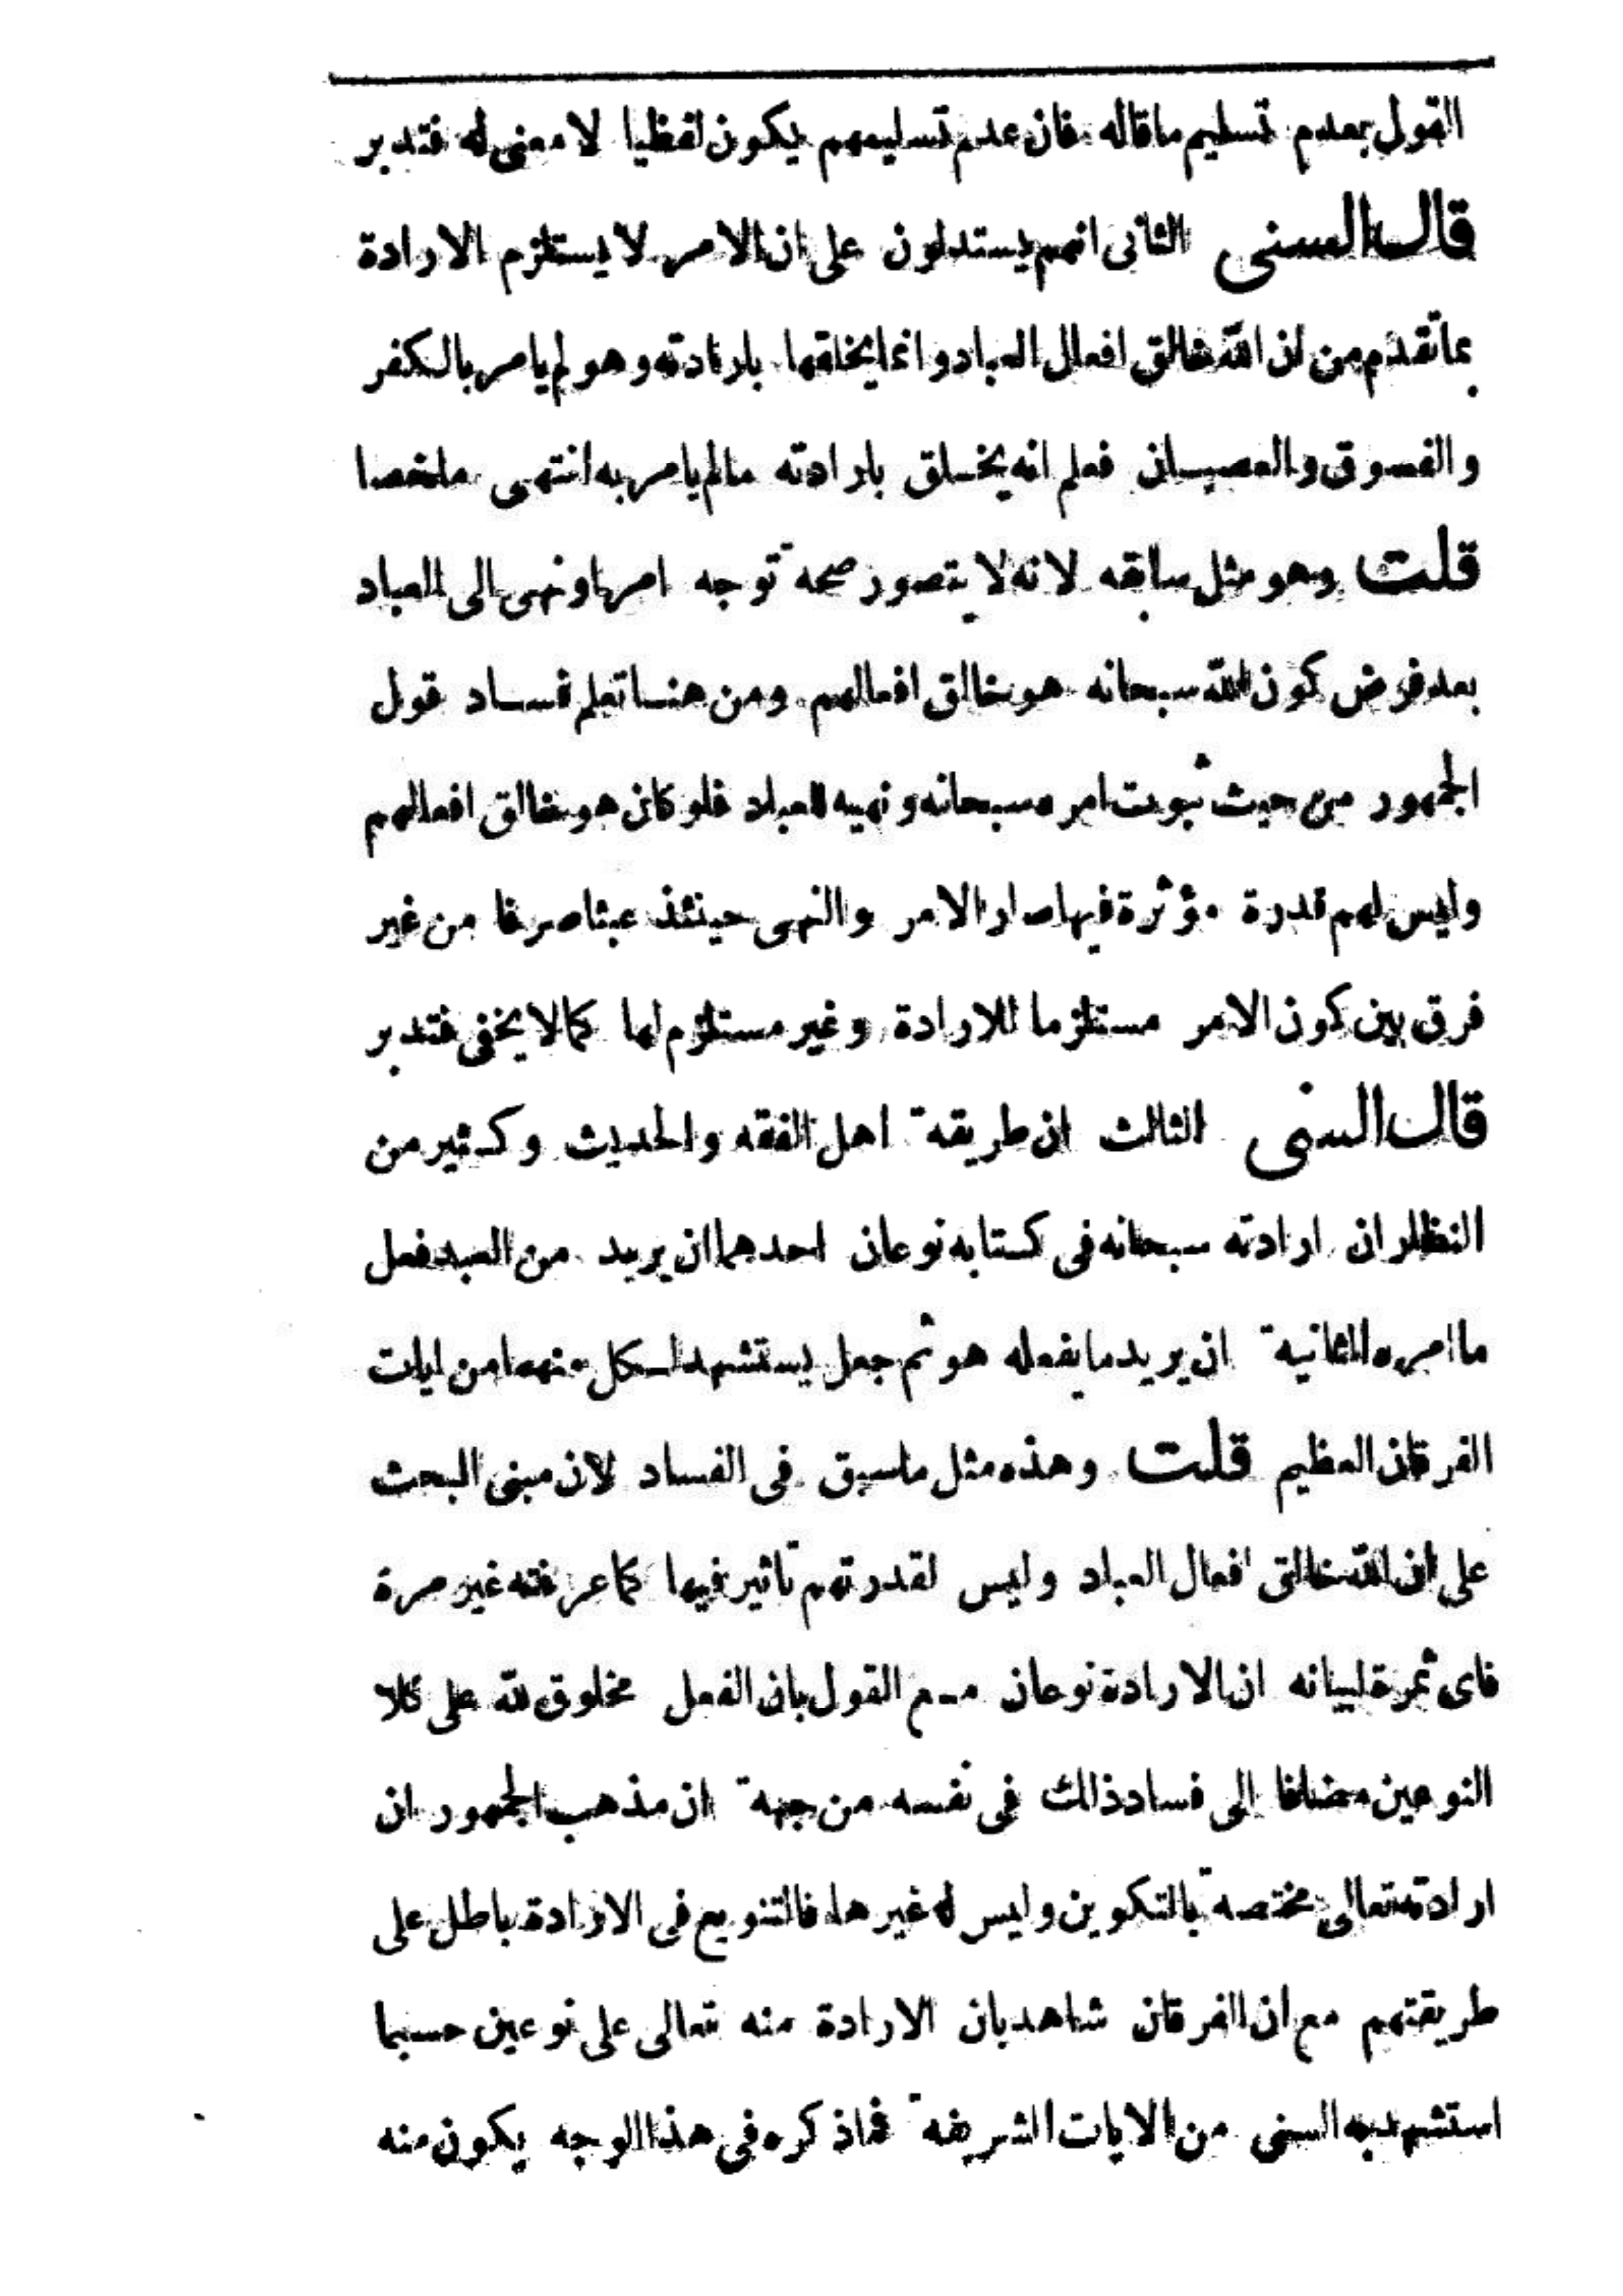 القول بعدم تسليم ماقاله فان عدم تسليمهم يكون لفظيا لا معنى له فتدبر
قال السنى الثانى انهم يستدلون على ان الامر لا يستلزم الارادة
بما تقدم من ان الله خالق افعال العباد وانما يخلقها بارادته وهو لم يامر بالكفر
والفسوق والعصيان فعلم انه يخلق بارادته مالم يامر به انتهى ملخصا
قلت وهو مثل سابقه لانه لا يتصور صحة توجه امر او نهى الى العباد
بعد فرض كون الله سبحانه هو خالق افعالهم ومن هنا تعلم فساد قول
الجمهور من حيث ثبوت امره سبحانه ونهيه للعباد فلو كان هو خالق افعالهم
وليس لهم قدرة مؤثرة فيها صار الامر والنهى حينئذ عبثا صرفا من غير
فرق بين كون الامر مستلزما للارادة وغير مستلزم لها كما لا يخفى فتدبر
قال السنى الثالث ان طريقة اهل الفقه والحديث وكثير من
النظار ان ارادته سبحانه فى كتابه نوعان احدهما ان يريد من العبد فعل
ما امره الثانية ان يريد ما يفعله هو ثم جعل يستشهد لكل منهما من ايات
الفرقان العظيم قلت وهذه مثل ماسبق فى الفساد لان مبنى البحث
على ان الله خالق افعال العباد وليس لقدرتهم تاثير فيها كما عرفته غير مرة
فاى ثمرة لبيانه ان الارادة نوعان مع القول بان الفعل مخلوق لله على كلا
النوعين مضافا الى فساد ذلك فى نفسه من جهة ان مذهب الجمهور ان
ارادته تعالى مختصة بالتكوين وليس له غيرها فالتنويع فى الارادة باطل على
طريقتهم مع ان الفرقان شاهد بان الارادة منه تعالى على نوعين حسبما
استشهد به السنى من الايات الشريفة فماذكره فى هذا الوجه يكون منه